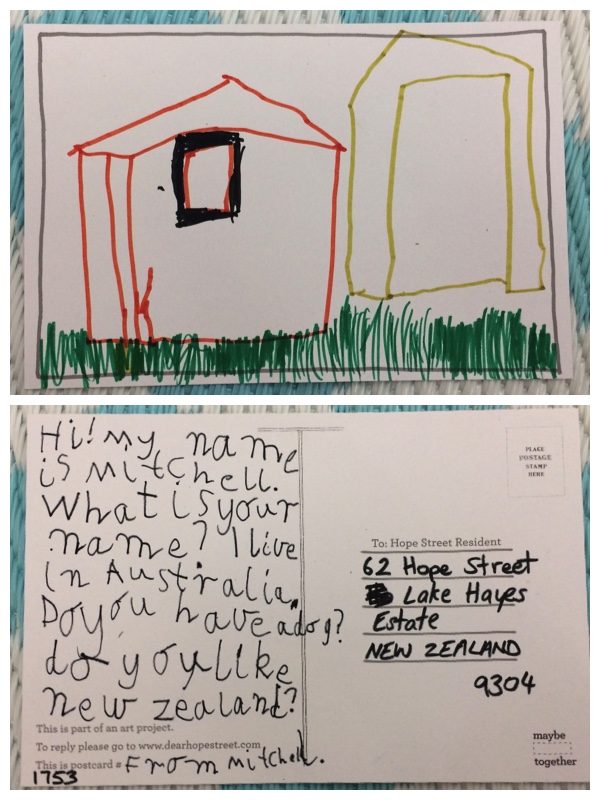 Hi! my name
is mitchell.
What is your
name? I live
in Australia.
Do you have a dog?
do you like
new zealand?
This is part of an art project.
To reply please go to www.dearhopestreet.com
This is postcard #
From mitchell.
1753
PLACE
POSTAGE
STAMP
HERE
To: Hope Street Resident
62 Hope Street
Lake Hayes
Estate
NEW ZEALAND
9304
maybe
together